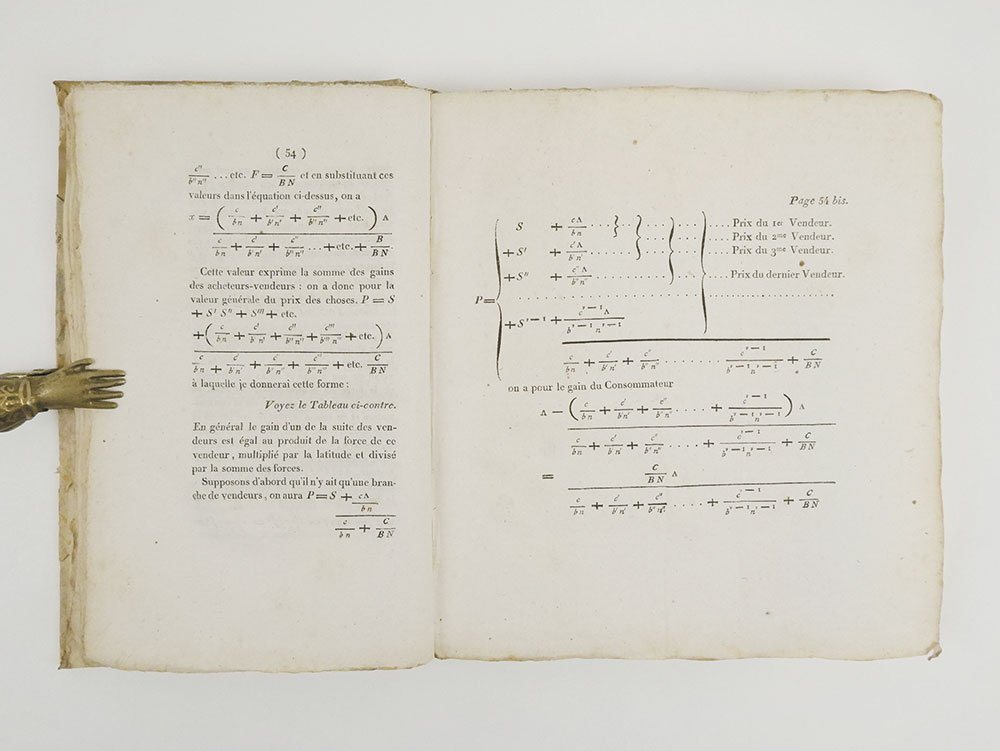 ( 54 )
c″/b″n″ ... etc. F = C/BN et en substituant ces
valeurs dans l'équation ci-dessus, on a
x = ( c/bn + c′/b′n′ + c″/b″n″ + etc. ) Λ
c/bn + c′/b′n′ + c″/b″n″ ... + etc. + B/BN.
Cette valeur exprime la somme des gains
des acheteurs-vendeurs : on a donc pour la
valeur générale du prix des choses. P = S
+ S′ S″ + S‴ + etc.
+ ( c/bn + c′/b′n′ + c″/b″n″ + c‴/b‴n‴ + etc. ) Λ
c/bn + c′/b′n′ + c′/b′n′ + c″/b″n″ + etc. C/BN
à laquelle je donnerai cette forme :
Voyez le Tableau ci-contre.
En général le gain d'un de la suite des ven-
deurs est égal au produit de la force de ce
vendeur, multiplié par la latitude et divisé
par la somme des forces.
Supposons d'abord qu'il n'y ait qu'une bran-
che de vendeurs, on aura P = S + cΛ/bn
c/bn + C/BN
Page 54 bis.
S + cΛ/bn .... } ... } ... } ... } .... Prix du 1er Vendeur.
.... Prix du 2me Vendeur.
+ S′ + c′Λ/b′n′ .... Prix du 3me Vendeur.
+ S″ + c″Λ/b″n″ .... Prix du dernier Vendeur.
P =
+ S^(r−1) + c^(r−1)Λ/b^(r−1)n^(r−1)
c/bn + c′/b′n′ + c″/b″n″ ........ c^(r−1)/b^(r−1)n^(r−1) + C/BN
on a pour le gain du Consommateur
Λ − ( c/bn + c′/b′n′ + c″/b″n″ .... + c^(r−1)/b^(r−1)n^(r−1) ) Λ
c/bn + c′/b′n′ + c″/b″n″ .... + c^(r−1)/b^(r−1)n^(r−1) + C/BN
= C/BN Λ
c/bn + c′/b′n′ + c″/b″n″ .... + c^(r−1)/b^(r−1)n^(r−1) + C/BN